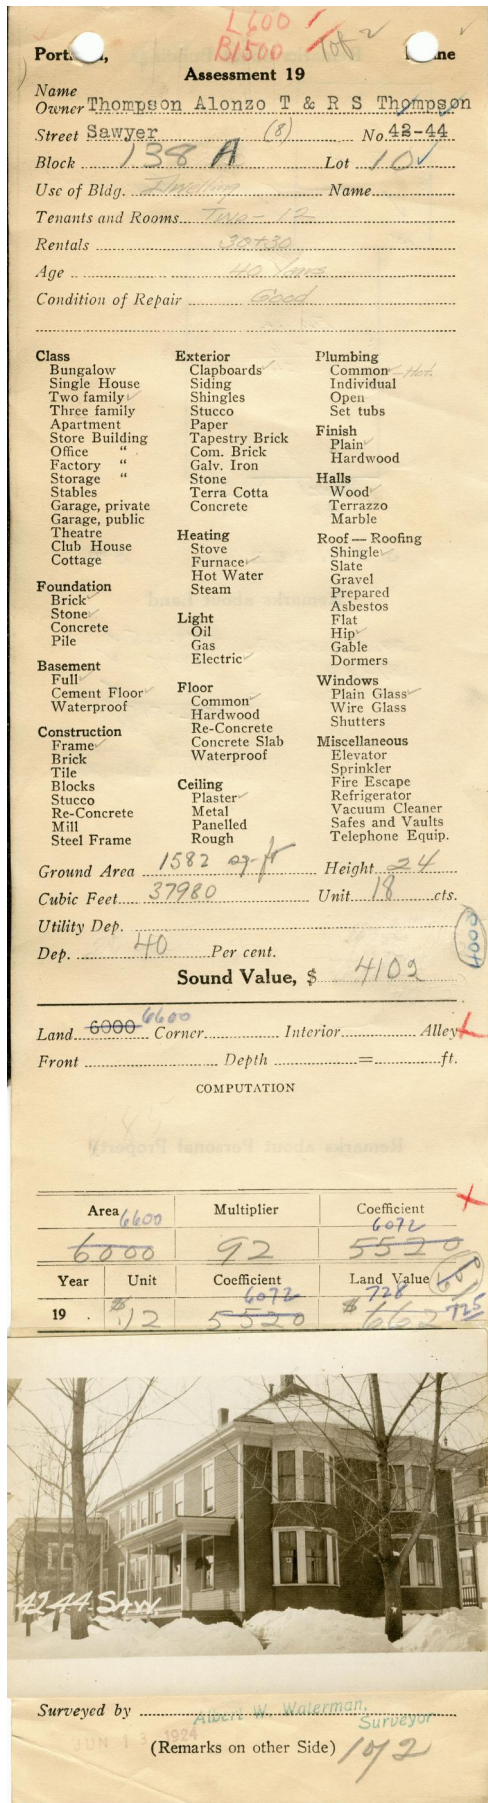 L600
B1500
1 of 2
Portland, Maine
Assessment 19
Name
Owner Thompson Alonzo T & R S Thompson
Street Sawyer (8) No. 42-44
Block 138 A Lot 10
Use of Bldg. Dwelling Name
Tenants and Rooms Two - 12
Rentals 30+30
Age 40 Years
Condition of Repair Good
Class
Bungalow
Single House
Two family
Three family
Apartment
Store Building
Office "
Factory "
Storage "
Stables
Garage, private
Garage, public
Theatre
Club House
Cottage
Foundation
Brick
Stone
Concrete
Pile
Basement
Full
Cement Floor
Waterproof
Construction
Frame
Brick
Tile
Blocks
Stucco
Re-Concrete
Mill
Steel Frame
Exterior
Clapboards
Siding
Shingles
Stucco
Paper
Tapestry Brick
Com. Brick
Galv. Iron
Stone
Terra Cotta
Concrete
Heating
Stove
Furnace
Hot Water
Steam
Light
Oil
Gas
Electric
Floor
Common
Hardwood
Re-Concrete
Concrete Slab
Waterproof
Ceiling
Plaster
Metal
Panelled
Rough
Plumbing
Common - Hot.
Individual
Open
Set tubs
Finish
Plain
Hardwood
Halls
Wood
Terrazzo
Marble
Roof — Roofing
Shingle
Slate
Gravel
Prepared
Asbestos
Flat
Hip
Gable
Dormers
Windows
Plain Glass
Wire Glass
Shutters
Miscellaneous
Elevator
Sprinkler
Fire Escape
Refrigerator
Vacuum Cleaner
Safes and Vaults
Telephone Equip.
Ground Area 1582 sq-ft Height 24
Cubic Feet 37980 Unit 18 cts.
Utility Dep.
Dep. 40 Per cent.
Sound Value, $ 4102
Land 6000 6600 Corner Interior Alley
Front Depth = ft.
COMPUTATION
Area Multiplier Coefficient
6600 6072
6000 92 5520
Year Unit Coefficient Land Value
6072 728
19 $.12 5520 $ 662 725
42 44 SAW.
Surveyed by Albert W. Waterman,
Surveyor
JUN 13 1924
(Remarks on other Side) 1 of 2